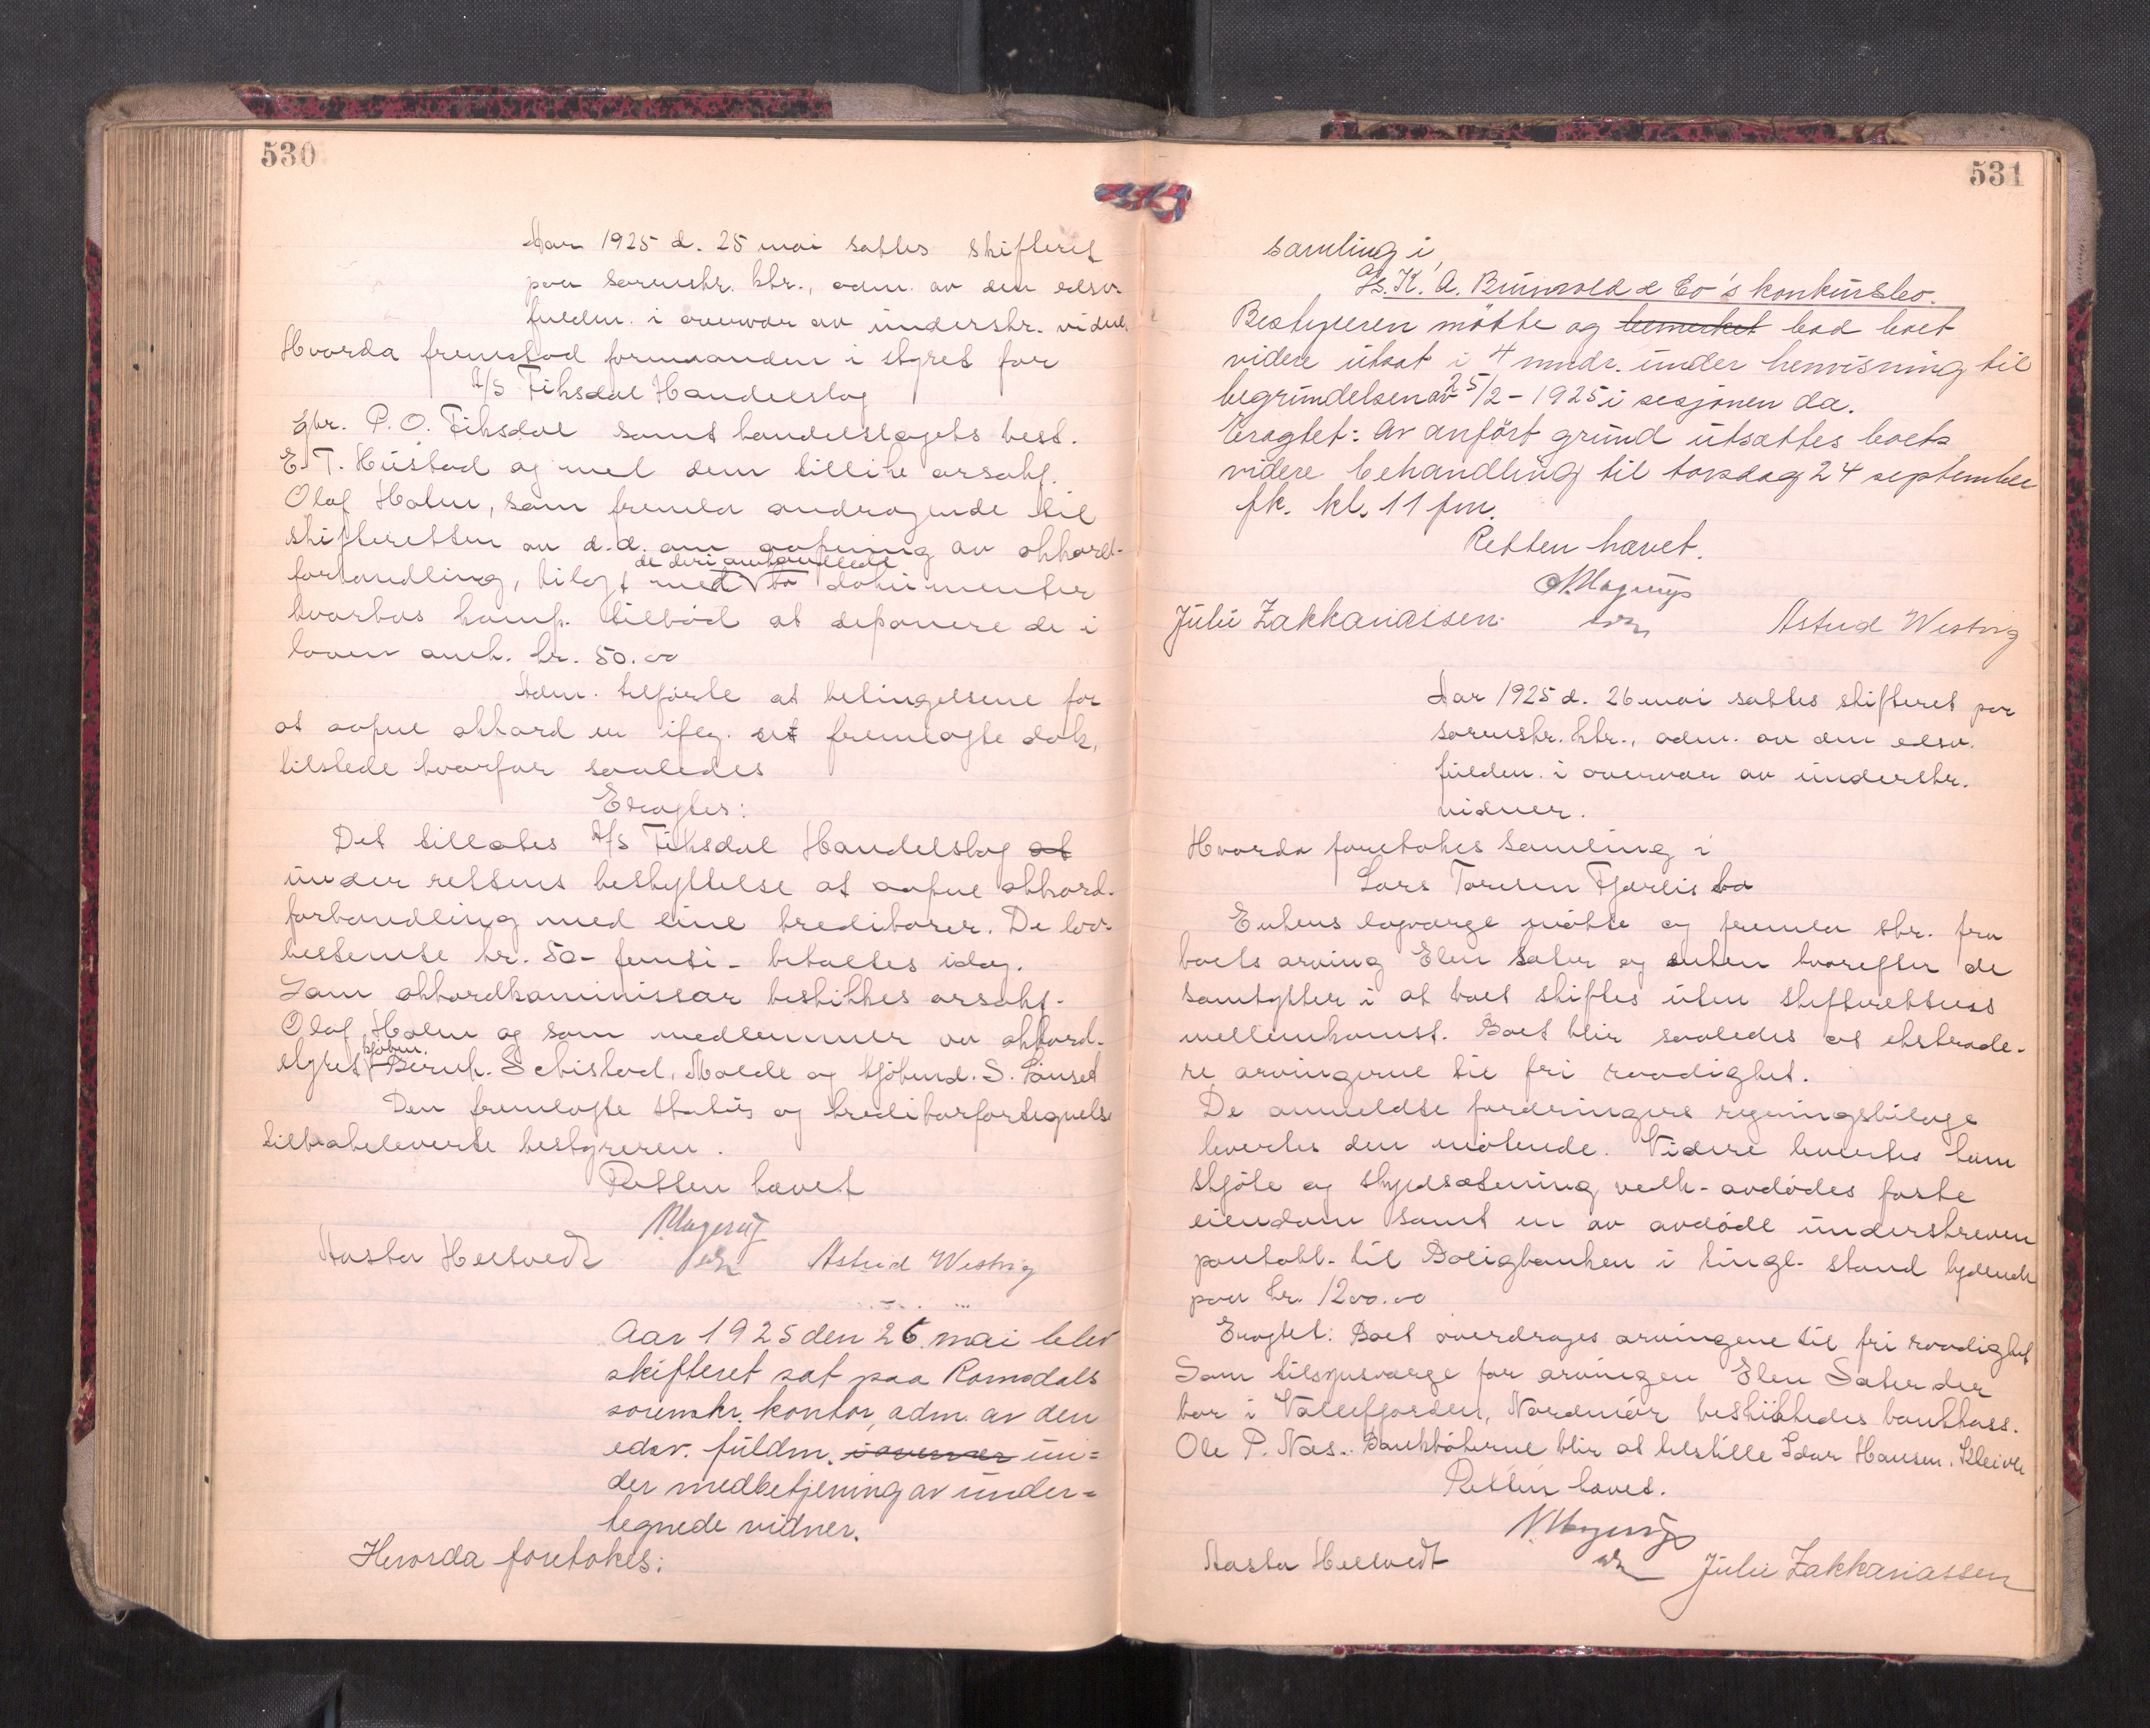 530
Aar 1925 d. 25 mai sattes skifteret
paa sorenskr. ktr., adm. av den edsv.
fuldm. i overvær av underskr. vidn.
Hvorda fremstod formanden i styret for
A/S Fiksdal Handelslag
gbr. P. O. Fiksdal samt handelslagets best.
E. T. Hustad og med dem tillike o.r.sakf.
Olaf Holm, som fremla andragende til
skifteretten av d.d. om aapning av akkord-
de deri anmeldte
forhandling, bilagt med to dokumenter
hvorhos komp. tilbød at deponere de i
loven anh. kr. 50.00
Adm. tilførte at betingelsene for
at aapne akkord er ifølg. et fremlagte dok.
tilstede hvorfor saaledes
Eragtes:
Det tillates A/S Fiksdal Handelslag at
under rettens beskyttelse at aapne akkord-
forhandling med sine kreditorer. De lov-
bestemte kr. 50 - femti - betaltes idag.
Som akkordkommissær beskikkes o.r.sakf.
Olaf Holm og som medlemmer av akkord-
kjøbm.
styret Bernh. Schistad, Molde og kjøbmd. S. Lønset
Den fremlagte status og kreditorfortegnelse
tilbakeleverte bestyreren.
Retten hævet
N. Magerøy
edsv
Aasta Heltvedt Astrid Westvig
Aar 1925 den 26. mai blev
skifteret sat paa Romsdals
sorenskr. kontor, adm. av den
edsv. fuldm. i overvær un=
der medbetjening av under=
tegnede vidner.
Hvorda foretokes:
531
samling i
A/S. K. A. Brunvold & Co's konkursbo.
Bestyreren møtte og bemerket bad boet
videre utsat i 4 mndr. under henvisning til
begrundelsen av 25/2 - 1925 i sesjonen da.
Eragtet: Av anført grund utsættes boets
videre behandling til torsdag 24 september
fk. kl. 11 fm.
Retten hævet.
N. Magerøy
edsv
Julie Zakkariassen. Astrid Westvig
Aar 1925 d. 26 mai sattes skifteret paa
sorenskr. ktr., adm. av den edsv.
fuldm. i overvær av underskr.
vidner.
Hvorda foretokes samling i
Lars Toresen Fjærlis bo
Enkens lagværge møtte og fremla skr. fra
boets arving Elen Sæter og enken hvorefter de
samtykker i at boet skiftes uten skifterettens
mellemkomst. Boet blir saaledes at ekstrade-
re arvingerne til fri raadighet.
De anmeldte fordringers regningsbilage
levertes den møtende. Videre levertes ham
skjøte og skyldsætning vedk. avdødes faste
eiendom samt en av avdøde underskreven
pantobl. til Boligbanken i tingl. stand lydende
paa kr. 1200.00
Eragtet: Boet overdrages arvingene til fri raadighet
Som tilsynsværge for arvingen Elen Sæter der
bor i Valsøfjorden, Nordmør beskikkedes bankkass.
Ole P. Næs. Bankbøkerne blir at tilstille Idar Hansen, Kleive
Retten hævet.
N. Magerøy
edsv
Aasta Heltvedt Julie Zakkariassen